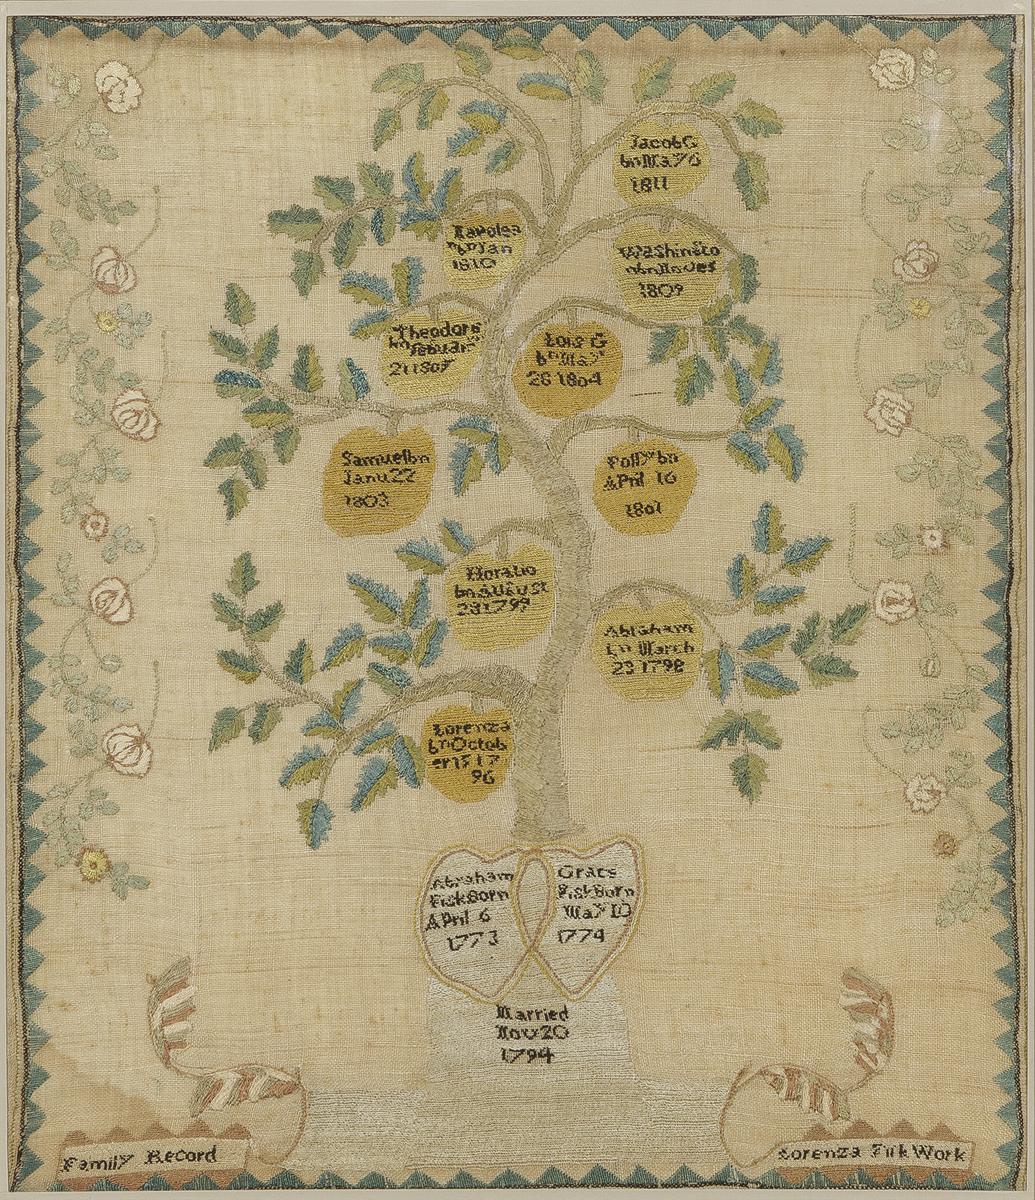 JacobG
bn May 6
1811
Napolea
n bn Jan
1810
Washingto
n bn Nov
1809
Theodore
bn
21 1807
Lois G
bn May
28 1804
Samuel bn
Janu 22
1803
Polly bn
April 16
1801
Horatio
bn August
23 1799
Abraham
bn March
23 1798
Lorenza
bn Octob
er 15 17
96
Abraham
Fisk Born
April 6
1773
Grace
Fisk Born
May 10
1774
Married
Nov 20
1794
Family Record
Lorenza Fisk Work